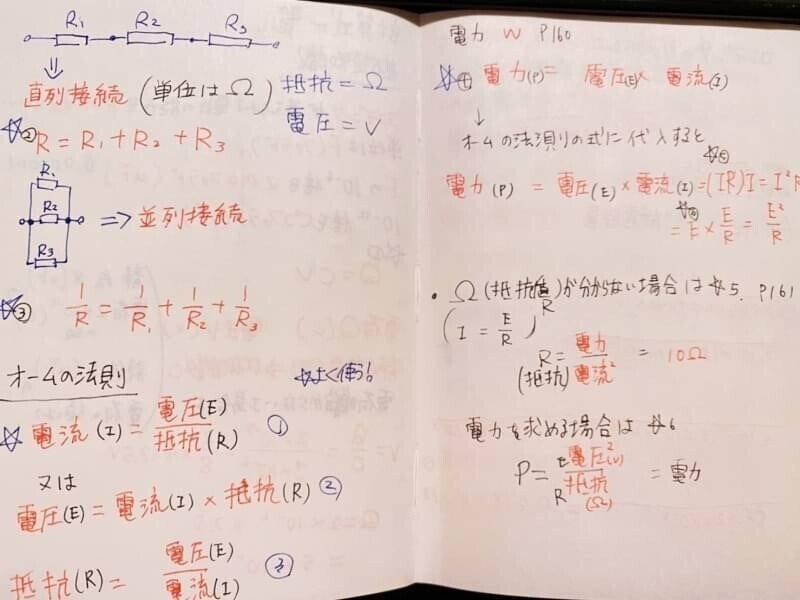 R₁ R₂ R₃
⇓
直列接続 (単位は Ω) 抵抗 = Ω
電圧 = V
☆② R = R₁ + R₂ + R₃
R₁
R₂ ⇒ 並列接続
R₃
☆③ 1/R = 1/R₁ + 1/R₂ + 1/R₃
オームの法則 ☆よく使う
☆ 電流(I) = 電圧(E)/抵抗(R) ①
又は
電圧(E) = 電流(I) × 抵抗(R) ②
抵抗(R) = 電圧(E)/電流(I) ③
電力 W P160
☆④ 電力(P) = 電圧(E) × 電流(I)
↓
オームの法則りの式に代入すると
電力(P) = 電圧(E) × 電流(I) = (IR)I = I²R
= E × E/R = E²/R
・Ω (抵抗値)が分からない場合は ☆5. P161
R
(I = E/R)
R = 電力/電流² = 10Ω
(抵抗)
電力を求める場合は ☆6
P = E電圧²(V)/R抵抗(Ω) = 電力